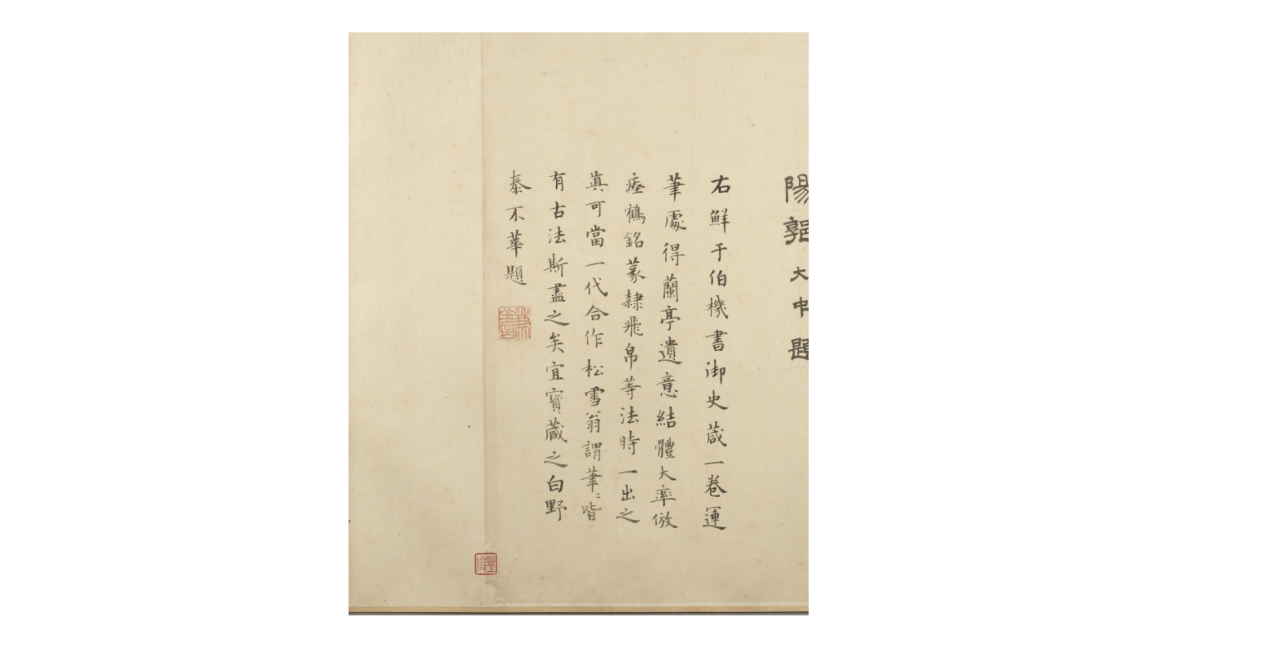 陽郭大中題
右鮮于伯機書御史葴一卷運
筆處得蘭亭遺意結體大率倣
瘞鶴銘篆隸飛帛等法時一出之
真可當一代合作松雪翁謂筆〻皆
有古法斯盡之矣宜寶藏之白野
泰不華題